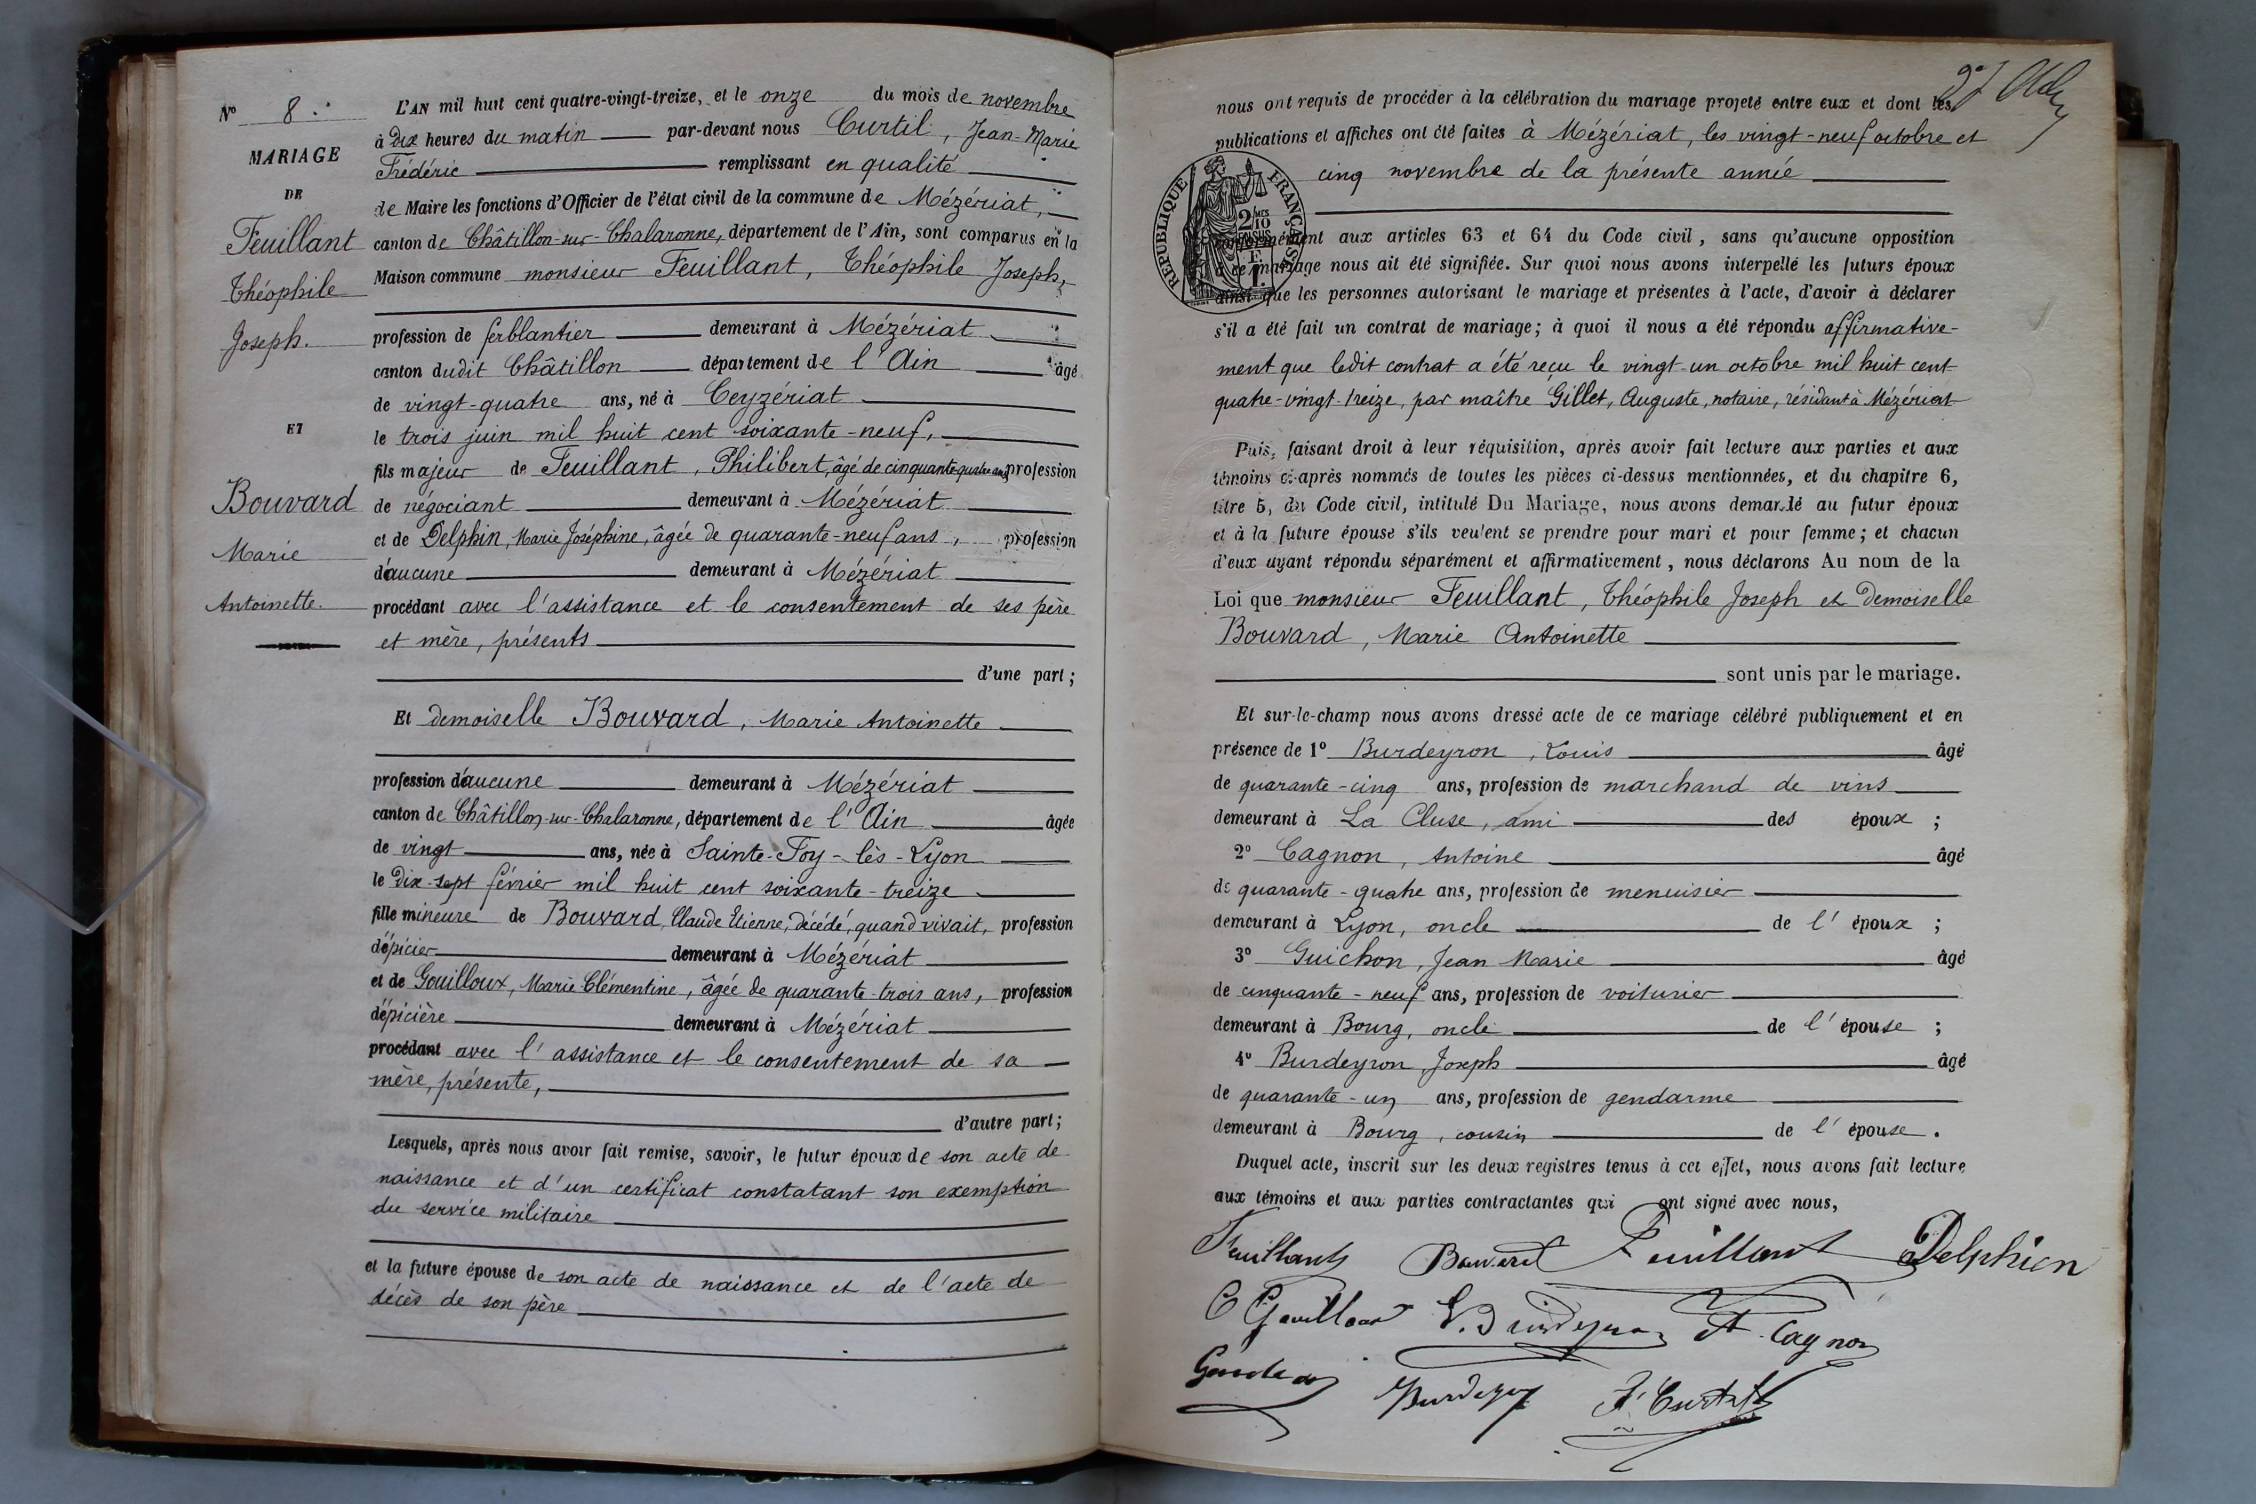 N° 8.
MARIAGE
DE
Feuillant
Théophile
Joseph.
ET
Bouvard
Marie
Antoinette.
L'AN mil huit cent quatre-vingt-treize, et le onze du mois de novembre
à dix heures du matin par-devant nous Curtil, Jean-Marie
Frédéric remplissant en qualité
de Maire les fonctions d'Officier de l'état civil de la commune de Mézériat,
canton de Châtillon-sur-Chalaronne, département de l'Ain, sont comparus en la
Maison commune monsieur Feuillant, Théophile Joseph,
profession de ferblantier demeurant à Mézériat
canton dudit Châtillon département de l'Ain âgé
de vingt-quatre ans, né à Ceyzériat
le trois juin mil huit cent soixante-neuf,
fils majeur de Feuillant, Philibert, âgé de cinquante-quatre ans, profession
de négociant demeurant à Mézériat
et de Delphin, Marie Joséphine, âgée de quarante-neuf ans, profession
d'aucune demeurant à Mézériat
procédant avec l'assistance et le consentement de ses père
et mère, présents
d'une part;
Et demoiselle Bouvard, Marie Antoinette
profession d'aucune demeurant à Mézériat
canton de Châtillon-sur-Chalaronne, département de l'Ain âgée
de vingt ans, née à Sainte-Foy-lès-Lyon
le dix-sept février mil huit cent soixante-treize
fille mineure de Bouvard, Claude Etienne, décédé, quand vivait, profession
d'épicier demeurant à Mézériat
et de Gouilloux, Marie Clémentine, âgée de quarante-trois ans, profession
d'épicière demeurant à Mézériat
procédant avec l'assistance et le consentement de sa
mère, présente,
d'autre part;
Lesquels, après nous avoir fait remise, savoir, le futur époux de son acte de
naissance et d'un certificat constatant son exemption
du service militaire
et la future épouse de son acte de naissance et de l'acte de
décès de son père
nous ont requis de procéder à la célébration du mariage projeté entre eux et dont les
publications et affiches ont été faites à Mézériat, les vingt-neuf octobre et
cinq novembre de la présente année
REPUBLIQUE FRANÇAISE
2/10
EN SUS
conformément aux articles 63 et 64 du Code civil, sans qu'aucune opposition
à ce mariage nous ait été signifiée. Sur quoi nous avons interpellé les futurs époux
ainsi que les personnes autorisant le mariage et présentes à l'acte, d'avoir à déclarer
s'il a été fait un contrat de mariage; à quoi il nous a été répondu affirmative-
ment que ledit contrat a été reçu le vingt-un octobre mil huit cent
quatre-vingt-treize, par maître Gillet, Auguste, notaire, résidant à Mézériat
Puis, faisant droit à leur réquisition, après avoir fait lecture aux parties et aux
témoins ci-après nommés de toutes les pièces ci-dessus mentionnées, et du chapitre 6,
titre 5, du Code civil, intitulé Du Mariage, nous avons demandé au futur époux
et à la future épouse s'ils veulent se prendre pour mari et pour femme; et chacun
d'eux ayant répondu séparément et affirmativement, nous déclarons Au nom de la
Loi que monsieur Feuillant, Théophile Joseph et demoiselle
Bouvard, Marie Antoinette
sont unis par le mariage.
Et sur-le-champ nous avons dressé acte de ce mariage célébré publiquement et en
présence de 1° Burdeyron, Louis âgé
de quarante-cinq ans, profession de marchand de vins
demeurant à La Cluse, ami des époux;
2° Cagnon, Antoine âgé
de quarante-quatre ans, profession de menuisier
demeurant à Lyon, oncle de l'époux;
3° Guichon, Jean Marie âgé
de cinquante-neuf ans, profession de voiturier
demeurant à Bourg, oncle de l'épouse;
4° Burdeyron, Joseph âgé
de quarante-un ans, profession de gendarme
demeurant à Bourg, cousin de l'épouse.
Duquel acte, inscrit sur les deux registres tenus à cet effet, nous avons fait lecture
aux témoins et aux parties contractantes qui ont signé avec nous,
Feuillant Bouvard Feuillant Delphien
C Gouilloux L. Burdeyron A. Cagnon
Burdeyron F. Curtil